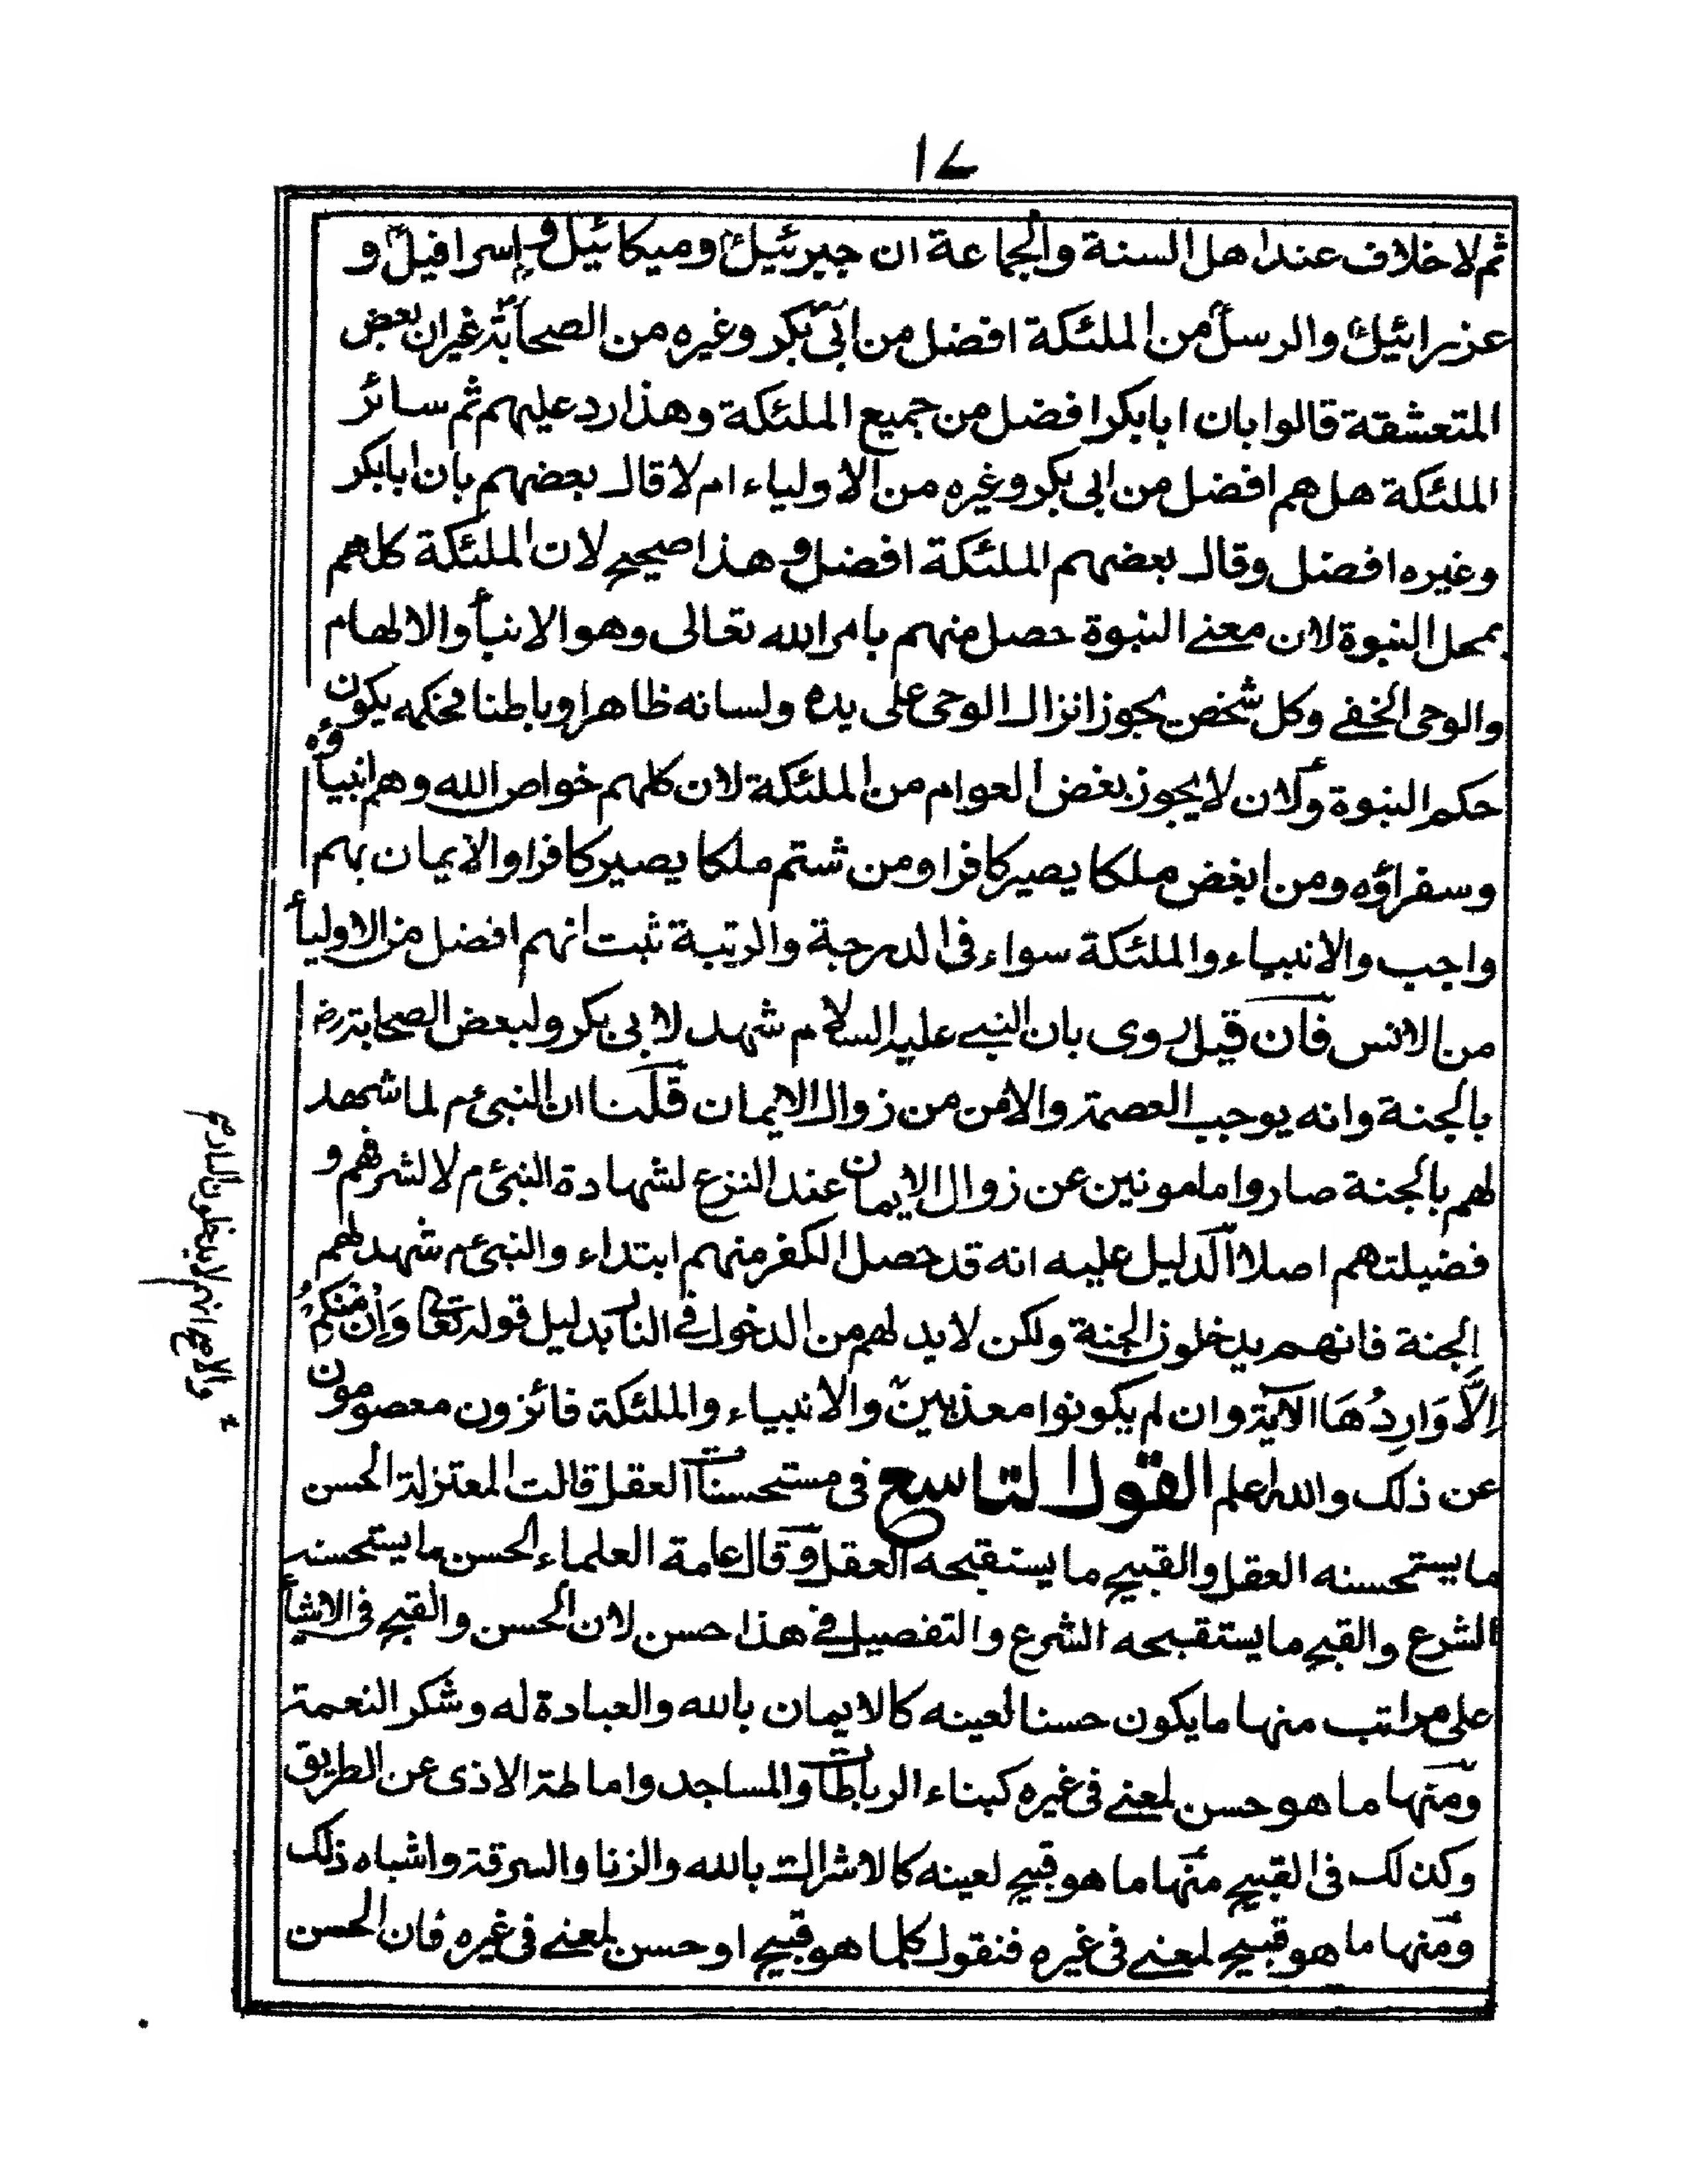 ١٧
ثم لا خلاف عند اهل السنة والجماعة ان جبرئيلؑ وميكائيل واسرافيلؑ و
عزرائيلؑ والرسلؑ من الملئكة افضل من ابی بكرؓ وغيره من الصحابة غير ان بعض
المتعشقة قالوا بان ابابكر افضل من جميع الملئكة وهذا رد عليهم ثم سائر
الملئكة هل هم افضل من ابی بكر وغيره من الاولياء ام لا قال بعضهم بان ابابكر
وغيره افضل وقال بعضهم الملئكة افضل وهذا صحيح لان الملئكة كلهم
بمحل النبوة لان معنے النبوة حصل منهم بامر الله تعالى وهو الانبأ والالهام
والوحی الخفے وكل شخص يجوز انزال الوحی على يده ولسانه ظاهرا وباطنا فحكمه يكون
حكم النبوة ولان لا يجوز بغض العوام من الملئكة لان كلهم خواص الله وهم انبياؤه
وسفراؤه ومن ابغض ملكا يصير كافرا ومن شتم ملكا يصير كافرا والايمان بهم
واجب والانبياء والملئكة سواء فی الدرجة والرتبة ثبت انهم افضل من الاوليأ
من الانس فان قيل روی بان النبے عليه السلام شهد لابی بكر ولبعض الصحابة رض
بالجنة وانه يوجب العصمة والامن من زوال الايمان قلنا ان النبیءم لما شهد
لهم بالجنة صاروا مامونين عن زوال الايمان عند النزع لشهادة النبیءم لا لشرفهم و
فضيلتهم اصلا الدليل عليه انه قد حصل الكفر منهم ابتداء والنبیءم شهد لهم
الجنة فانهم يدخلون الجنة ولكن لا بد لهم من الدخول فے النار بدليل قوله تعا وَاِنْ مِّنْكُمْ
اِلَّا وَارِدُهَا الآية وان لم يكونوا معذبين والانبياء والملئكة فائزون معصومون
عن ذلك والله اعلم القول التاسع فی مستحسنات العقل قالت المعتزلة الحسن
ما يستحسنه العقل والقبيح ما يستقبحه العقل وقال عامة العلماء الحسن ما يستحسنه
الشرع والقبح ما يستقبحه الشرع والتفصيل فے هذا حسن لان الحسن والقبح فی الاشيأ
على مراتب منها ما يكون حسنا لعينه كالايمان بالله والعبادة له وشكر النعمة
ومنها ما هو حسن لمعنے فی غيره كبناء الرباطات والمساجد واماطة الاذی عن الطريق
وكذلك فی القبيح منها ما هو قبيح لعينه كالاشراك بالله والزنا والسرقة واشباه ذلك
ومنها ما هو قبيح لمعنے فی غيره فنقول كلما هو قبيح او حسن لمعنے فی غيره فان الحسن
والاصح انهم لا يدخلون النار